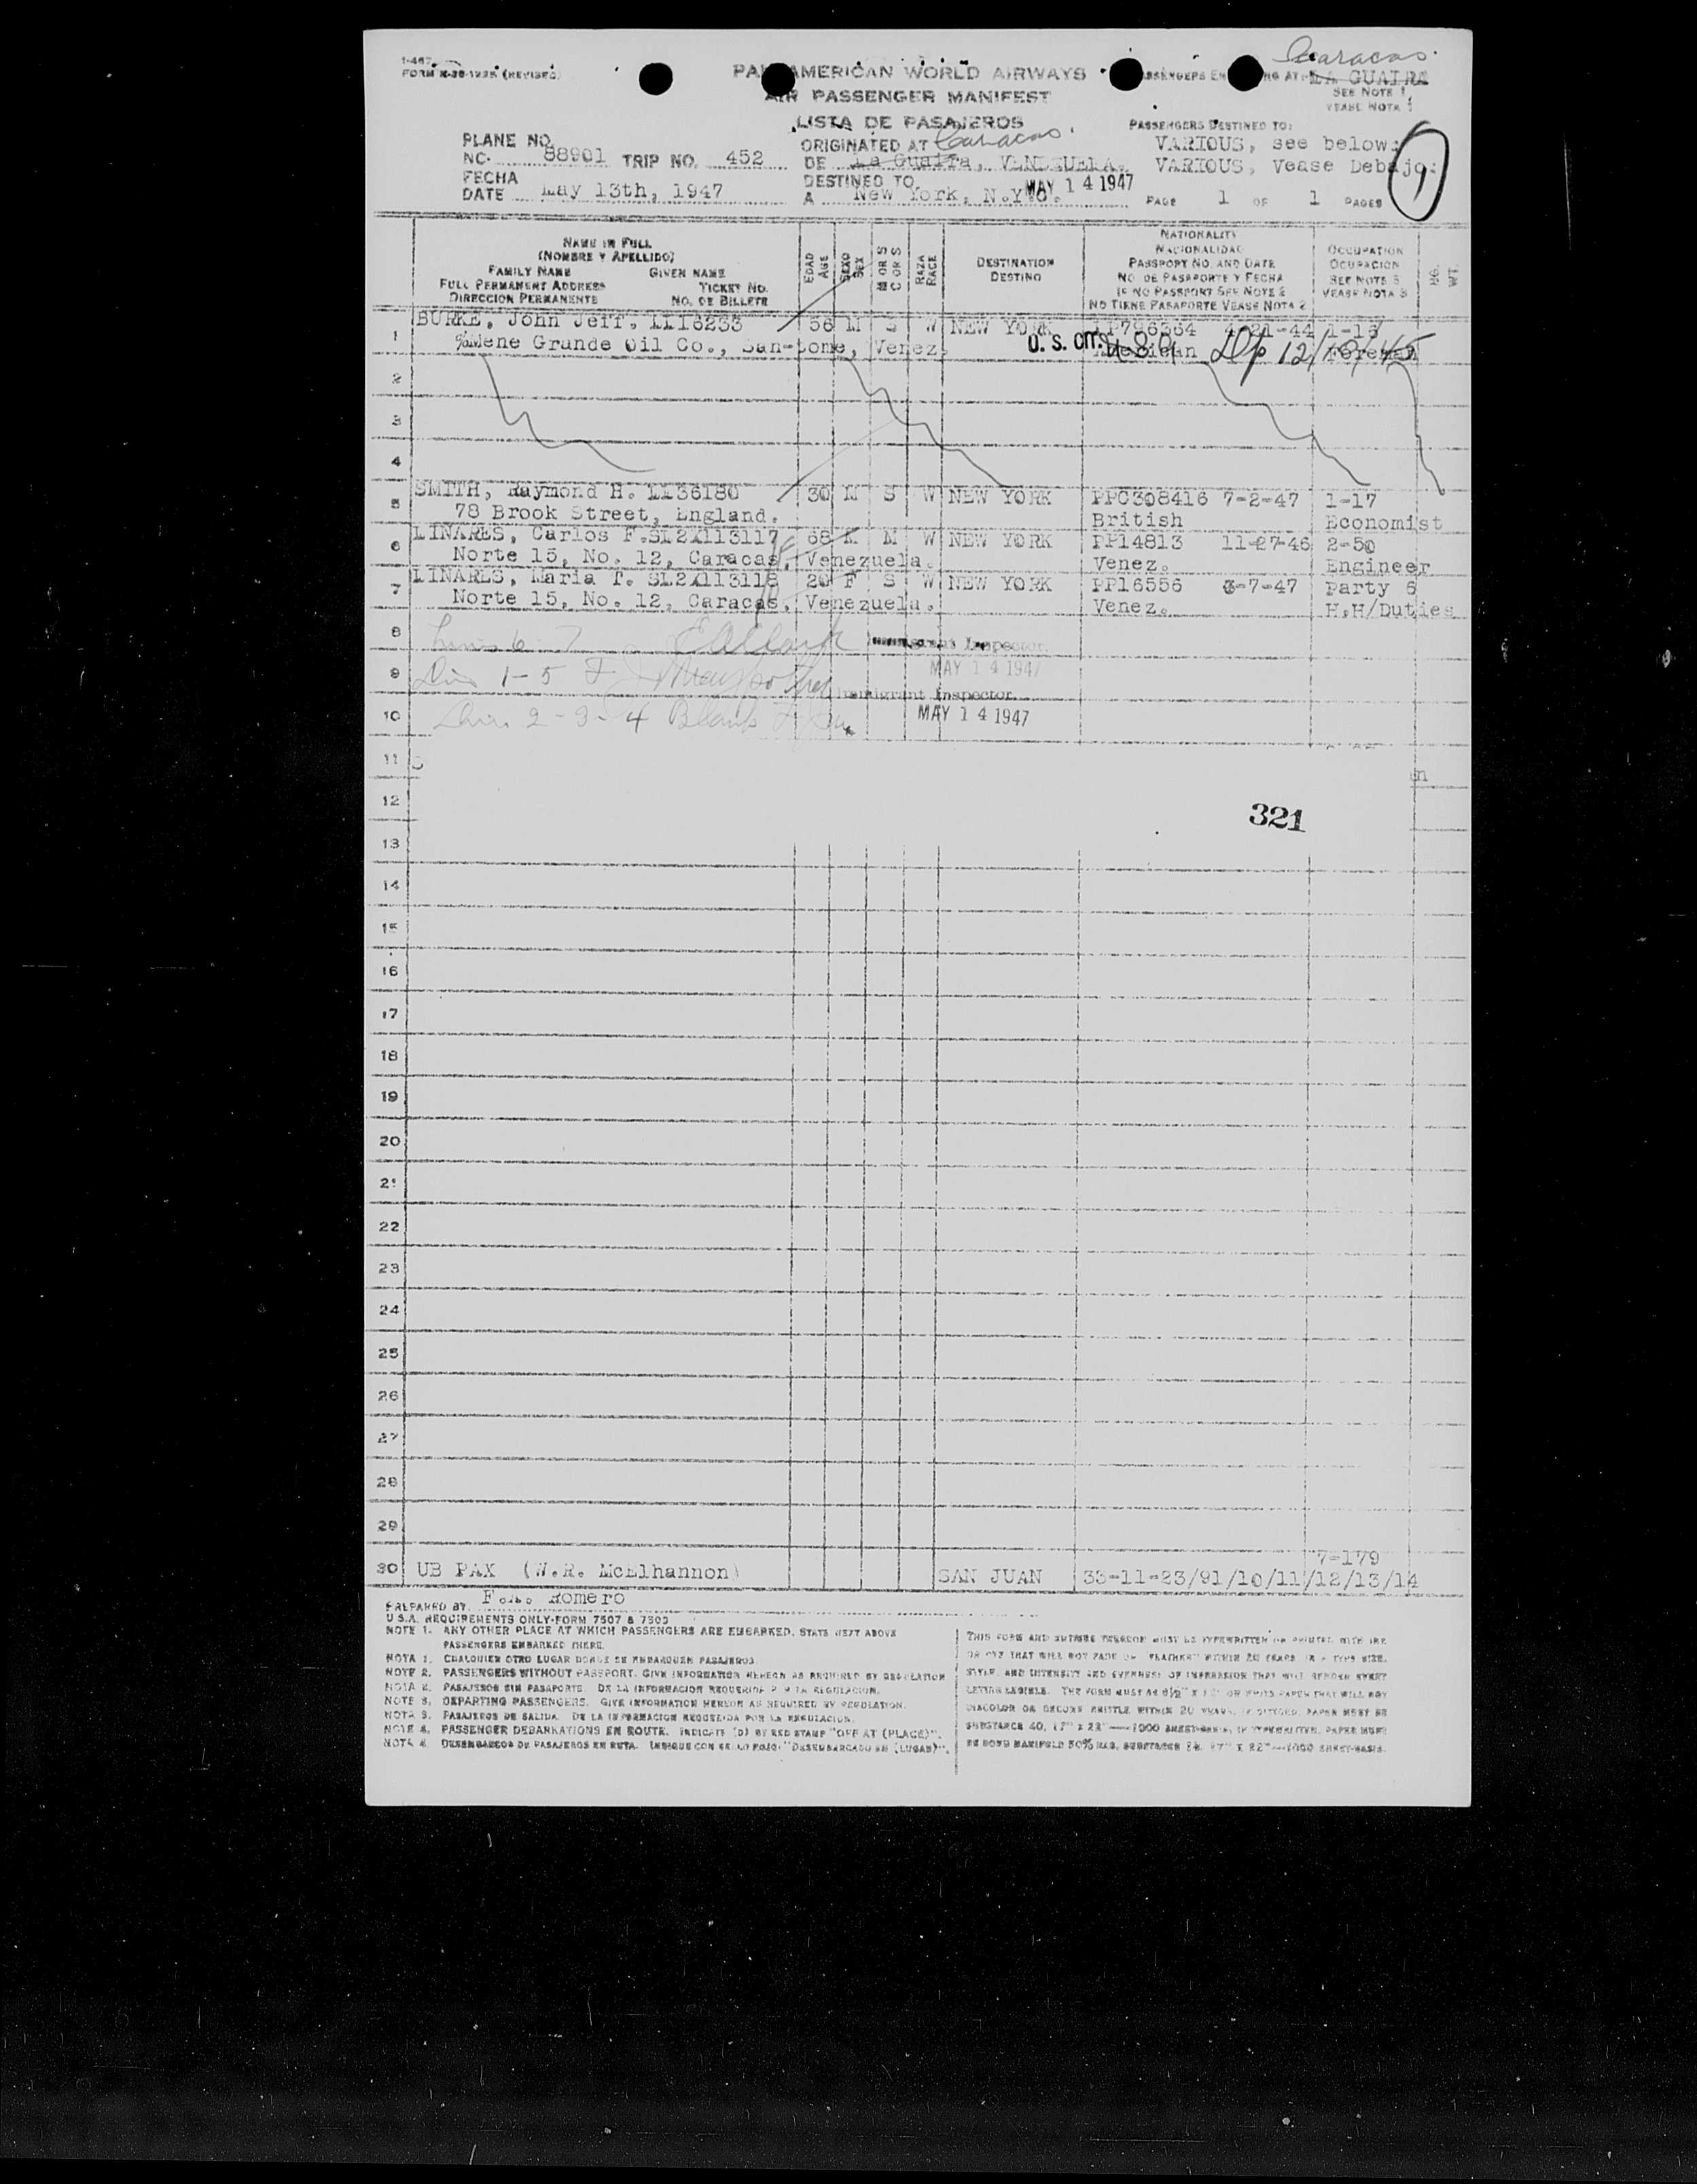 I-467
FORM (REVISED)
PAN AMERICAN WORLD AIRWAYS
AIR PASSENGER MANIFEST
LISTA DE PASAJEROS
Caracas
PASSENGERS EMBARKING AT LA GUAIRA
SEE NOTE 1
VEASE NOTA 1
PLANE NO.
NC. 88901 TRIP NO. 452
FECHA
DATE May 13th, 1947
ORIGINATED AT Caracas
DE La Guaira, VENEZUELA.
DESTINED TO MAY 14 1947
A New York, N.Y.
PASSENGERS DESTINED TO:
VARIOUS, see below:
VARIOUS, Vease Debajo:
PAGE 1 OF 1 PAGES
NAME IN FULL
(NOMBRE Y APELLIDO)
FAMILY NAME GIVEN NAME
FULL PERMANENT ADDRESS TICKET NO.
DIRECCION PERMANENTE NO. DE BILLETE
EDAD AGE
SEXO SEX
M OR S
C OR S
RAZA RACE
DESTINATION
DESTINO
NATIONALITY
NACIONALIDAD
PASSPORT NO. AND DATE
NO. DE PASAPORTE Y FECHA
IF NO PASSPORT SEE NOTE 2
NO TIENE PASAPORTE VEASE NOTA 2
OCCUPATION
OCUPACION
SEE NOTE 3
VEASE NOTA 3
KG. WT.
1 BURKE, John Jeff. LI16233 56 M S W NEW YORK PP796364 4-21-44 1-16
%Mene Grande Oil Co., San-tome, Venez. U.S. CIT. American Foreman
2
3
4
5 SMITH, Raymond H. LI36180 30 M S W NEW YORK PPC308416 7-2-47 1-17
78 Brook Street, England. British Economist
6 LINARES, Carlos F. SL2X113117 68 M M W NEW YORK PP14813 11-27-46 2-50
Norte 15, No. 12, Caracas, Venezuela. Venez. Engineer
7 LINARES, Maria T. SL2X113118 20 F S W NEW YORK PP16556 3-7-47 Party 6
Norte 15, No. 12, Caracas, Venezuela. Venez. H.H/Duties
8 Lines 6-7 Immigrant Inspector
MAY 14 1947
9 Lines 1-5
Immigrant Inspector
10 Lines 2-3-4 Blank MAY 14 1947
11
12 321
13
14
15
16
17
18
19
20
21
22
23
24
25
26
27
28
29
7-179
30 UB PAX (W.R. McElhannon) SAN JUAN 33-11-23/91/10/11/12/13/14
PREPARED BY Romero
U.S.A. REQUIREMENTS ONLY-FORM 7507 & 7509
NOTE 1. ANY OTHER PLACE AT WHICH PASSENGERS ARE EMBARKED, STATE NEXT ABOVE
PASSENGERS EMBARKED THERE.
NOTA 1. CUALQUIER OTRO LUGAR DONDE SE EMBARQUEN PASAJEROS.
NOTE 2. PASSENGERS WITHOUT PASSPORT. GIVE INFORMATION HEREON AS REQUIRED BY REGULATION
NOTA 2. PASAJEROS SIN PASAPORTE. DE LA INFORMACION REQUERIDA POR LA REGULACION.
NOTE 3. DEPARTING PASSENGERS. GIVE INFORMATION HEREON AS REQUIRED BY REGULATION.
NOTA 3. PASAJEROS DE SALIDA. DE LA INFORMACION REQUERIDA POR LA REGULACION.
NOTE 4. PASSENGER DEBARKATIONS EN ROUTE. INDICATE (D) BY RED STAMP "OFF AT (PLACE)".
NOTA 4. DESEMBARCOS DE PASAJEROS EN RUTA. INDIQUE CON SELLO ROJO: "DESEMBARCADO EN (LUGAR)".
THIS FORM AND ENTRIES THEREON MUST BE TYPEWRITTEN OR PRINTED WITH INK
OR DYE THAT WILL NOT FADE OR "FEATHER" WITHIN 20 YEARS IN A TYPE SIZE,
STYLE, AND INTENSITY AND EVENNESS OF IMPRESSION THAT WILL RENDER EVERY
LETTER LEGIBLE. THE FORM MUST BE 8½" X 13" OR WHITE PAPER THAT WILL NOT
DISCOLOR OR BECOME BRITTLE WITHIN 20 YEARS. IF PRINTED, PAPER MUST BE
SUBSTANCE 40, 17" X 22"—1000 SHEET-BASIS, IF TYPEWRITTEN, PAPER MUST
BE BOND MANIFOLD 50% RAG, SUBSTANCE 17" X 22"—1000 SHEET-BASIS.